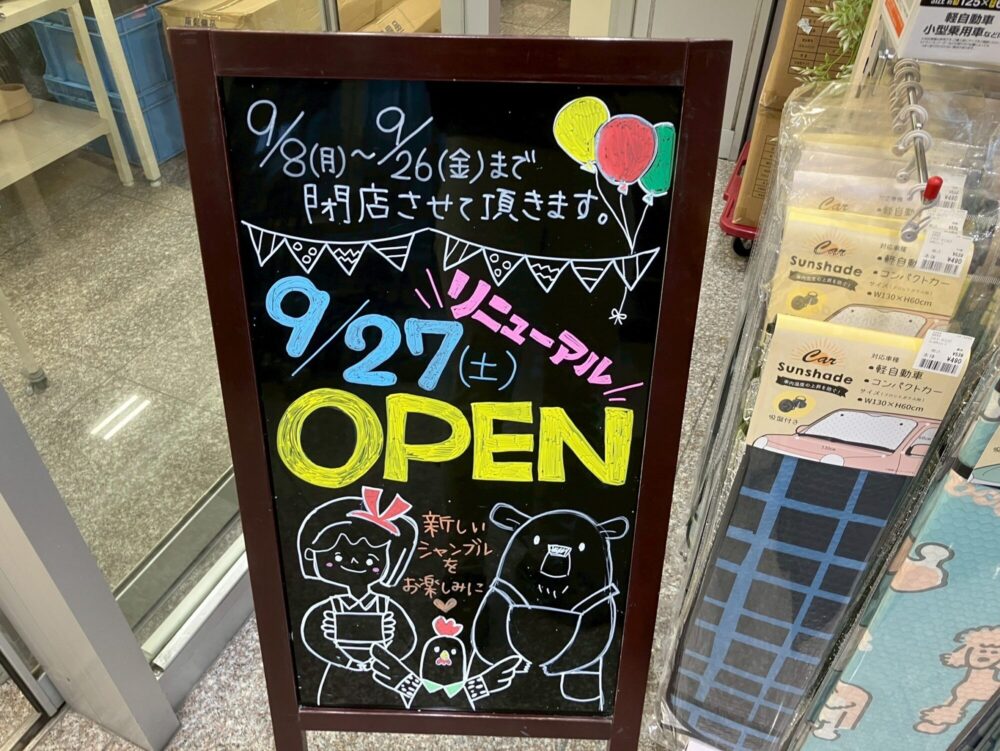 9/8(月)～9/26(金)まで
閉店させて頂きます。
リニューアル
9/27(土)
OPEN
新しい
シャンブル
を
お楽しみに
軽自動車
小型乗用車など
Car
Sunshade
対応車種
コンパクトカー
W130×H60cm
¥490
Car
Sunshade
車内温度の上昇を防ぐ!
吸盤付き
対応車種
・軽自動車
・コンパクトカー
・W130×H60cm
¥490